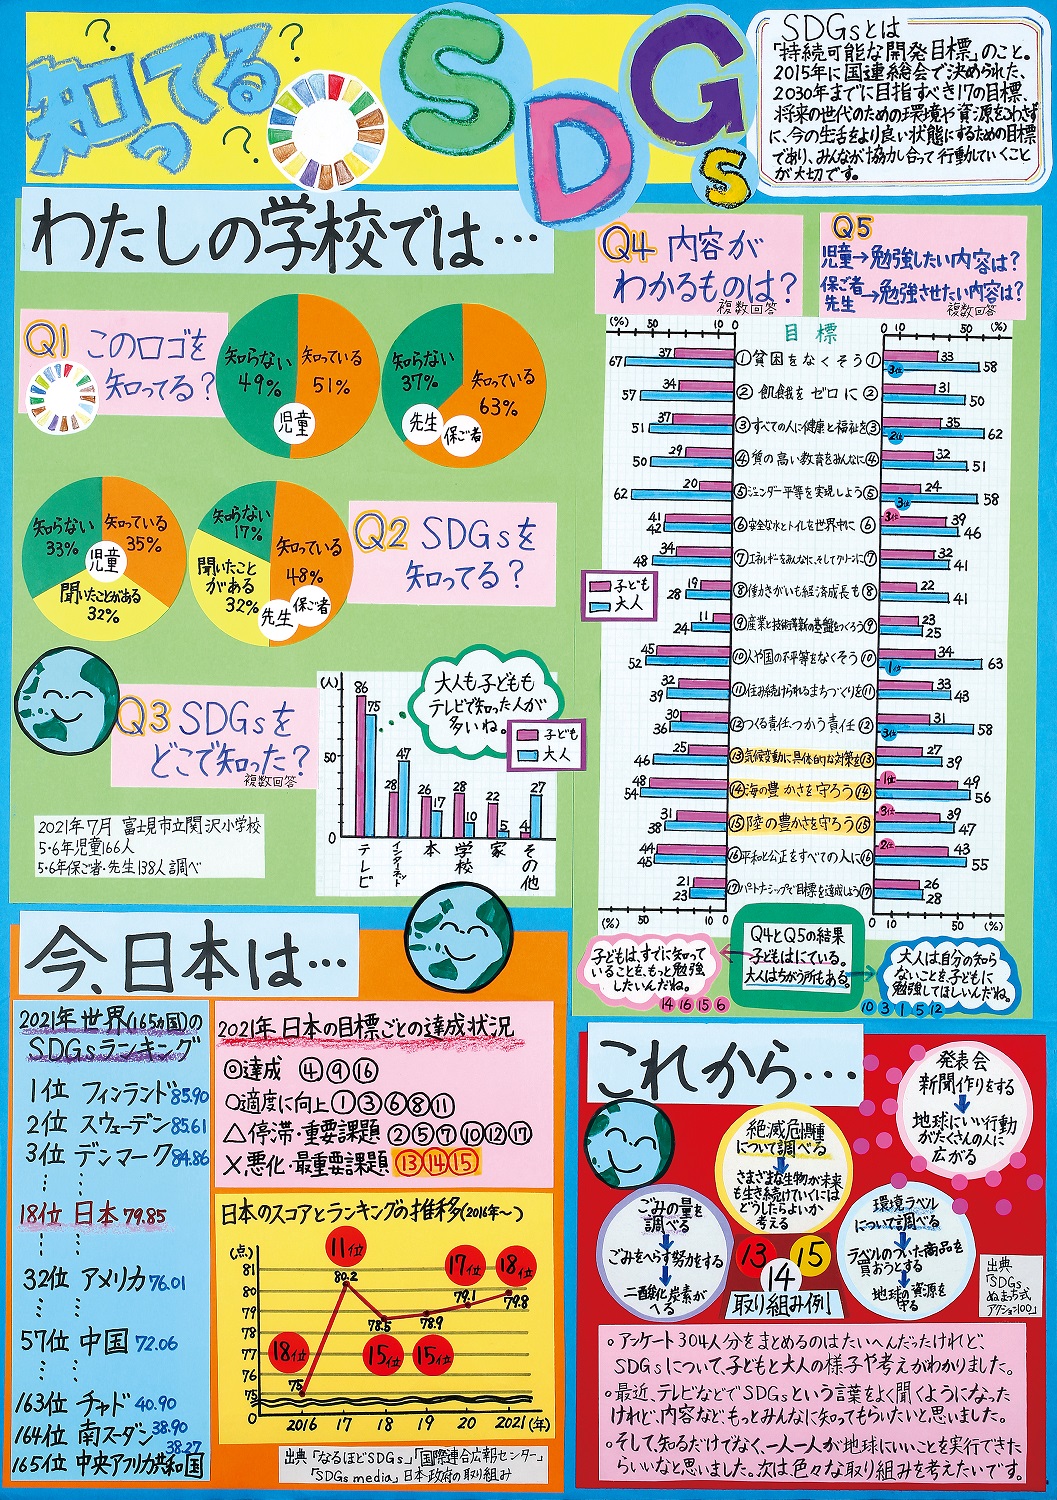 知ってる
?
?
?
SDGs
SDGsとは
「持続可能な開発目標」のこと。
2015年に国連総会で決められた、
2030年までに目指すべき17の目標、
将来の世代のための環境や資源をこわさず
に、今の生活をより良い状態にするための目標
であり、みんなが協力し合って行動していくこと
が大切です。
わたしの学校では…
Q1 このロゴを
知ってる?
知らない
49%
知っている
51%
児童
知らない
37%
知っている
63%
先生
保ご者
知らない
33%
知っている
35%
児童
聞いたことがある
32%
知らない
17%
知っている
48%
聞いたこと
がある
32%
先生
保ご者
Q2 SDGsを
知ってる?
Q3 SDGsを
どこで知った?
複数回答
2021年7月 富士見市立関沢小学校
5・6年児童166人
5・6年保ご者・先生138人調べ
(人)
50
0
86
75
28
47
26
17
28
10
22
5
4
27
テレビ
インターネット
本
学校
家
その他
大人も子どもも
テレビで知った人が
多いね。
子ども
大人
Q4 内容が
わかるものは?
複数回答
Q5
児童→勉強したい内容は?
保ご者
先生→勉強させたい内容は?
複数回答
(%) 50 10 0
目標
0 10 50 (%)
37 67 ①貧困をなくそう① 33 58 3位
34 57 ②飢餓をゼロに② 31 50
37 51 ③すべての人に健康と福祉を③ 35 62 2位
29 50 ④質の高い教育をみんなに④ 32 51
20 62 ⑤ジェンダー平等を実現しよう⑤ 24 58 3位
41 42 ⑥安全な水とトイレを世界中に⑥ 39 46 3位
34 48 ⑦エネルギーをみんなに、そしてクリーンに⑦ 32 41
19 28 ⑧働きがいも経済成長も⑧ 22 41
11 24 ⑨産業と技術革新の基盤をつくろう⑨ 23 25
45 52 ⑩人や国の不平等をなくそう⑩ 34 63 1位
32 39 ⑪住み続けられるまちづくりを⑪ 33 43
30 36 ⑫つくる責任つかう責任⑫ 31 58 3位
25 46 ⑬気候変動に具体的な対策を⑬ 27 39
48 54 ⑭海の豊かさを守ろう⑭ 49 56 1位
31 38 ⑮陸の豊かさを守ろう⑮ 39 47 3位
44 45 ⑯平和と公正をすべての人に⑯ 43 55 2位
21 23 ⑰パートナーシップで目標を達成しよう⑰ 26 28
(%) 50 10 0
0 10 50 (%)
子ども
大人
子どもは、すでに知って
いることを、もっと勉強
したいんだね。
⑭⑯⑮⑥
Q4とQ5の結果
子どもはにている。
大人はちがう所もある。
大人は自分の知ら
ないことを、子どもに
勉強してほしいんだね。
⑩③①⑤⑫
今、日本は…
2021年 世界(165ヵ国)の
SDGsランキング
1位 フィンランド 85.90
2位 スウェーデン 85.61
3位 デンマーク 84.86
18位 日本 79.85
32位 アメリカ 76.01
57位 中国 72.06
163位 チャド 40.90
164位 南スーダン 38.90
165位 中央アフリカ共和国 38.27
2021年 日本の目標ごとの達成状況
◎達成 ④⑨⑯
○適度に向上 ①③⑥⑧⑪
△停滞・重要課題 ②⑤⑦⑩⑫⑰
×悪化・最重要課題 ⑬⑭⑮
日本のスコアとランキングの推移(2016年~)
(点)
81
80
79
78
77
76
75
0
18位
11位
15位
15位
17位
18位
75
80.2
78.5
78.9
79.1
79.8
2016 17 18 19 20 2021(年)
出典「なるほどSDGs」「国際連合広報センター」
「SDGs media」日本政府の取り組み
これから…
発表会
新聞作りをする
地球にいい行動
がたくさんの人に
広がる
絶滅危惧種
について調べる
さまざまな生物が未来
も生き続けていくには
どうしたらよいか
考える
ごみの量を
調べる
ごみをへらす努力をする
二酸化炭素が
へる
環境ラベル
について調べる
ラベルのついた商品を
買おうとする
地球の資源を
守る
13
14
15
取り組み例
出典
「SDGs
ぬまっち式
アクション100」
○アンケート304人分をまとめるのはたいへんだったけれど、
SDGsについて、子どもと大人の様子や考えがわかりました。
○最近、テレビなどでSDGsという言葉をよく聞くようになった
けれど、内容など、もっとみんなに知ってもらいたいと思いました。
○そして、知るだけでなく、一人一人が地球にいいことを実行できた
らいいなと思いました。次は色々な取り組みを考えたいです。